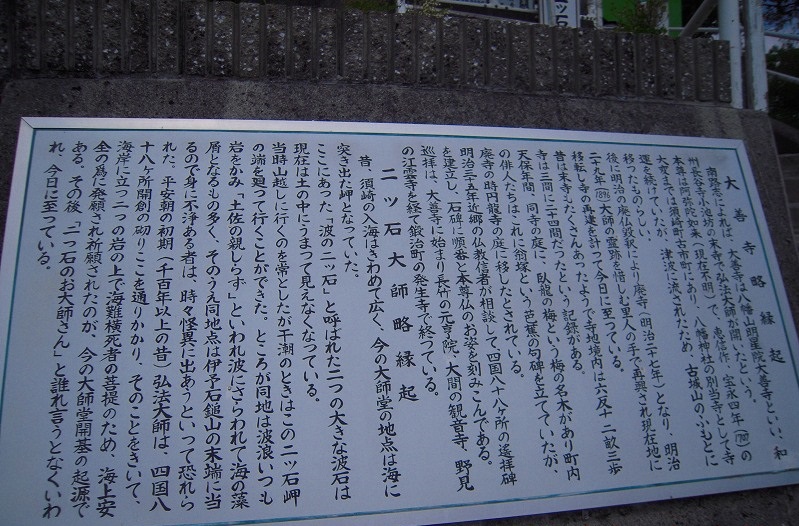 二ッ石
大善寺略縁起
南路志によれば、大善寺は八幡山明星院大善寺といい、和
州長谷寺小池坊の末寺で弘法大師が開いたという。
本尊は阿弥陀如来(現在不明)で、恵心作、宝永四年(1707)の
大変までは須崎町古市町にあり、八幡神社の別当寺として寺
運を続けていたが、津波に流されたため、古城山のふもとに
移ったものらしい。
後に明治の廃仏毀釈により廃寺(明治二十七年)となり、明治
二十九年(1896)大師の霊跡を惜しむ里人の手で再興され現在地に
移転し寺の再建を計って今日に至っている。
昔は末寺もたくさんあったようで寺地境内は六反十二畝三歩
寺は三間に二十四間だったという記録がある。
天保年間、同寺の庭に、臥龍の梅という梅の名木があり町内
の俳人たちは、これに翁塚という芭蕉の句碑を立てていたが、
廃寺の時円龍寺の庭に移したとされている。
明治三五年近郷の仏教信者が相談して、四国八十八ヶ所の遙拝碑
を建立し、石碑に順番と本尊仏のお姿を刻みこんである。
巡拝は、大善寺に始まり長竹の元亨院、大間の観音寺、野見
の江雲寺を経て鍛治町の発生寺で終っている。
二ッ石大師略縁起
昔、須崎の入海はきわめて広く、今の大師堂の地点は海に
突き出た岬となっていた。
ここにあった「波の二ッ石」と呼ばれた二つの大きな波石は
現在は土の中にうまって見えなくなっている。
当時山越しに行くのを常としたが干潮のときはこの二ッ石岬
の端を廻って行くことができた。ところが同地は波浪いつも
岩をかみ「土佐の親しらず」といわれ波にさらわれて海の藻
屑となるもの多く、そのうえ同地点は伊予石鎚山の末端に当
るので身に不浄ある者は、時々怪異に出あうといって恐れら
れた。平安朝の初期(千百年以上の昔)弘法大師は、四国八
十八ヶ所開創の砌りここを通りかかり、そのことをきいて、
海岸に立つ二つの岩の上で海難横死者の菩提のため、海上安
全の為に発願され祈願されたのが、今の大師堂開基の起源で
ある。その後「二つ石のお大師さん」と誰れ言うとなくいわ
れ、今日に至っている。